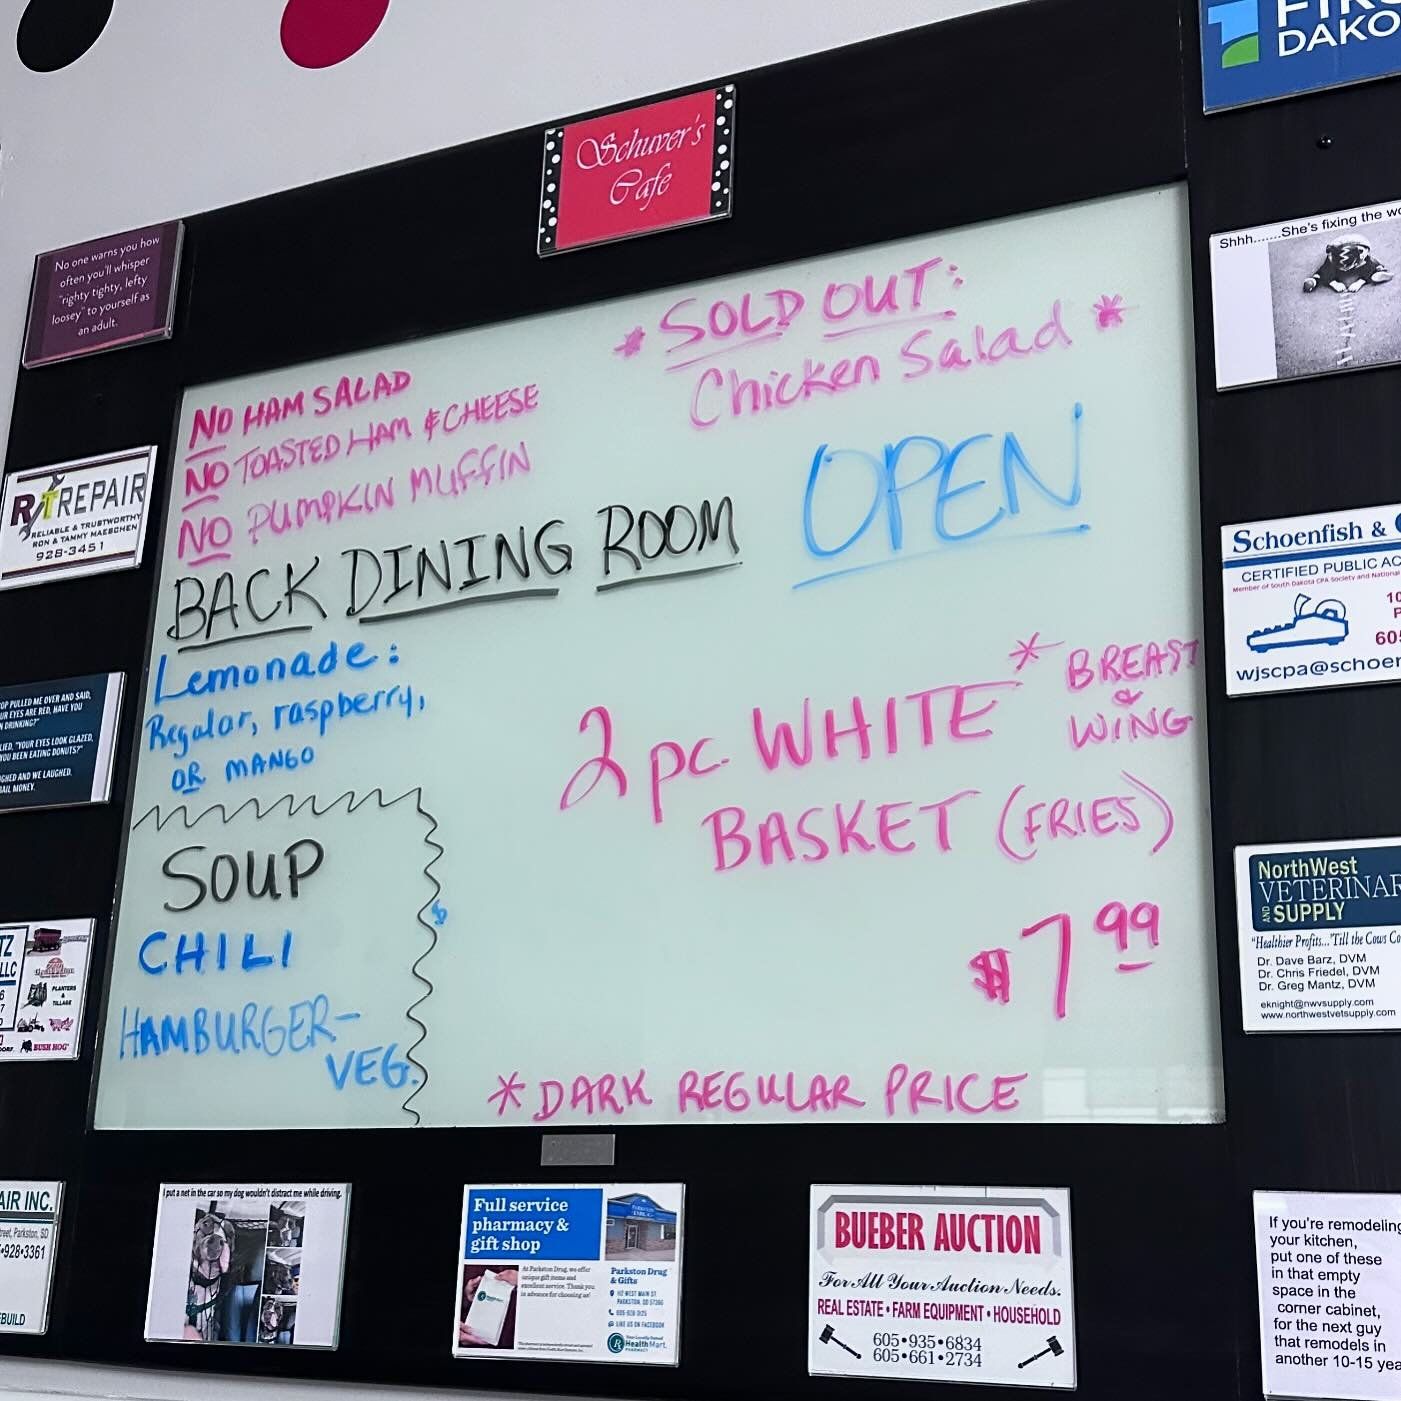 FIRS
DAKO
Schuver's
Cafe
No one warns you how
often you'll whisper
"righty tighty, lefty
loosey" to yourself as
an adult.
Shhh.......She's fixing the wo
* SOLD OUT:
Chicken Salad *
NO HAM SALAD
NO TOASTED HAM & CHEESE
NO PUMPKIN MUFFIN
BACK DINING ROOM OPEN
Lemonade:
Regular, raspberry,
OR MANGO
2 pc. WHITE * BREAST
& WING
BASKET (FRIES)
$7.99
SOUP
CHILI
HAMBURGER-
VEG.
* DARK REGULAR PRICE
RT REPAIR
RELIABLE & TRUSTWORTHY
RON & TAMMY MAESCHEN
928-3451
OP PULLED ME OVER AND SAID,
UR EYES ARE RED, HAVE YOU
N DRINKING?"
LIED, "YOUR EYES LOOK GLAZED,
YOU BEEN EATING DONUTS?"
GHED AND WE LAUGHED.
BAIL MONEY.
TZ
LLC
PLANTERS
&
TILLAGE
BUSH HOG
Schoenfish &
CERTIFIED PUBLIC AC
Member of South Dakota CPA Society and National
10
P
605
wjscpa@schoen
NorthWest
VETERINAR
AND SUPPLY
"Healthier Profits..."Till the Cows Co
Dr. Dave Barz, DVM
Dr. Chris Friedel, DVM
Dr. Greg Mantz, DVM
eknight@nwvsupply.com
www.northwestvetsupply.com
AIR INC.
reet, Parkston, SD
•928•3361
EBUILD
I put a net in the car so my dog wouldn't distract me while driving.
Full service
pharmacy &
gift shop
At Parkston Drug, we offer
unique gift items and
excellent service. Thank you
in advance for choosing us!
Parkston Drug
& Gifts
112 WEST MAIN ST.
PARKSTON, SD 57366
605-928-3125
LIKE US ON FACEBOOK
Health Mart
PHARMACY
BUEBER AUCTION
For All Your Auction Needs.
REAL ESTATE • FARM EQUIPMENT • HOUSEHOLD
605•935•6834
605•661•2734
If you're remodeling
your kitchen,
put one of these
in that empty
space in the
corner cabinet,
for the next guy
that remodels in
another 10-15 yea